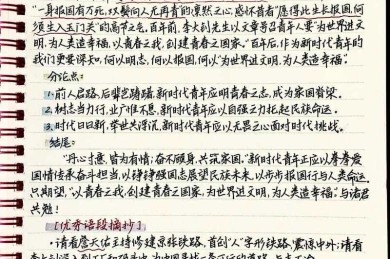 "一身报国有万死,双鬓向人无再青"的凛然之心,感怀昔者"愿得此生长报国,何
须生入玉门关"的高节之志。百年前,李大钊先生以文章号召青年人要"为世界进文
明,为人类造幸福,以青春之我,创建青春之国家。"百年后,作为新时代青年的
我们更要谨知,何以明志,何以报国,何以"为世界进文明,为人类造幸福。"
分论点:
1.前人启路,后辈 ,新时代青年应明青春之志,成为家国脊梁。
2.树志当力行,业广惟不息,新时代青年应以自强之力托起民族命运。
3.时代日日新,举世共浮沉,新时代青年应以无畏之心面对时代挑战。
结尾:
"丹心寸意,皆为有情;奋不顾身,共筑家国。"新时代青年正应以拳拳爱
国情传承奋斗担当,以铮铮强国志展望民族未来,以步步报国行与人类命运,
只期望,"以青春之我,创建青春之国家,为世界进文明,为人类造幸福。"与诸君
共勉!
[优秀语段摘抄]
·请看詹天佑主持修建京张铁路,首创"人"字形铁路,震惊中外;请看